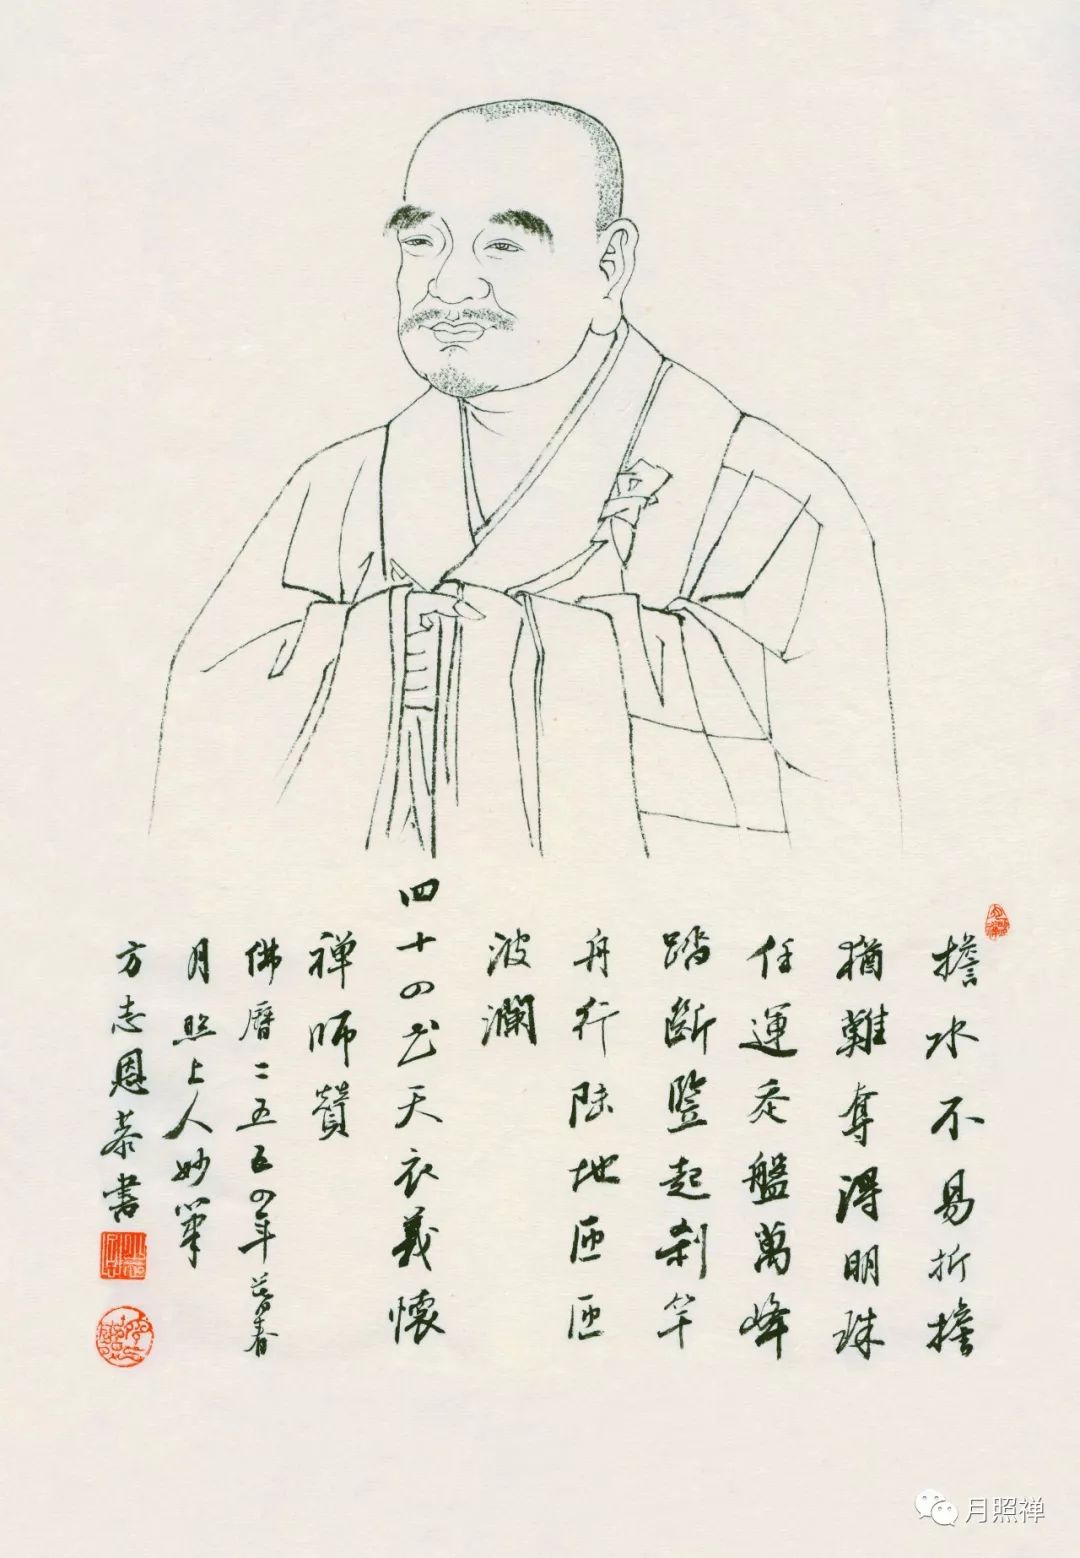 擔水不易折擔
猶難奪得明珠
任運走盤萬峰
踏斷豎起刹竿
舟行陸地匝匝
波瀾
四十四世天衣義懷
禅師贊
佛曆二五五四年暮春
月照上人妙筆
方志恩恭書
月照禅